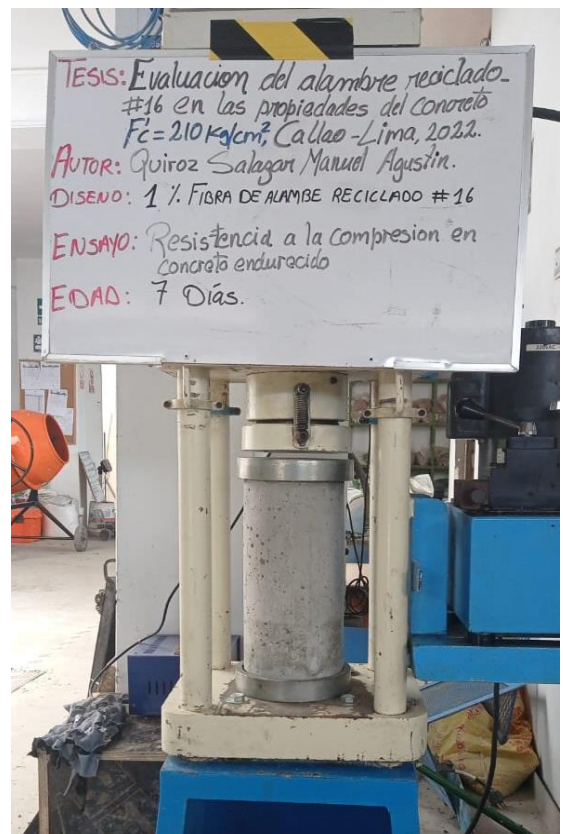 TESIS: Evaluacion del alambre reciclado
#16 en las propiedades del concreto
F'c=210 Kg/cm², Callao-Lima, 2022.
AUTOR: Quiroz Salazar Manuel Agustin.
DISEÑO: 1 % FIBRA DE ALAMBE RECICLADO #16
ENSAYO: Resistencia a la compresion en
concreto endurecido
EDAD: 7 Días.